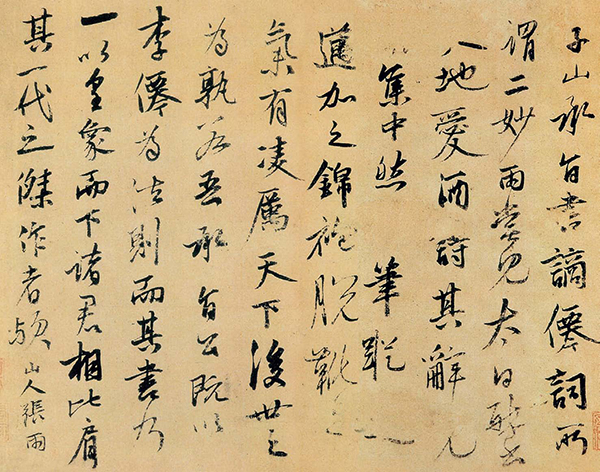 子山承旨書謫僊詞所
謂二妙雨嘗見太白醉書
地愛酒詩其辭
集中然筆蹤
遒加之錦袍脫靴
氣有凌厲天下後世之
為孰若吾承旨公既以
李僊為法則而其書乃
一以皇象而下諸君相比肩
其一代之傑作者歟山人張雨